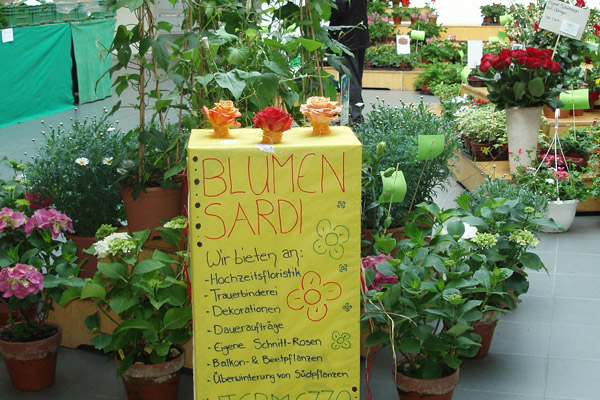 BLUMEN
SARDI
Wir bieten an:
- Hochzeitsfloristik
- Trauerbinderei
- Dekorationen
- Daueraufträge
- Eigene Schnitt-Rosen
- Balkon- & Beetpflanzen
- Überwinterung von Südpflanzen
INTERMEZZO